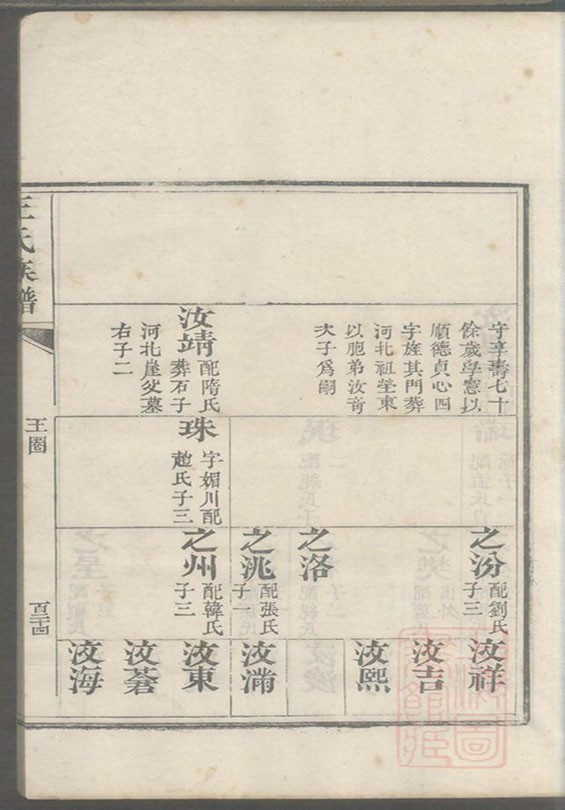 守享壽七十
餘歲學憲以
順德貞心四
字旌其門葬
河北祖塋東
以胞弟汝奇
次子為嗣
汝靖
配隋氏
葬石子
河北崖父墓
右子二
珠
字媚川配
趙氏子三
之汾
配劉氏
子三
之洛
之洮
配張氏
子一
之州
配韓氏
子三
汝祥
汝吉
汝熙
汝滿
汝東
汝蒼
汝海
王氏族譜
王圈
百三十四